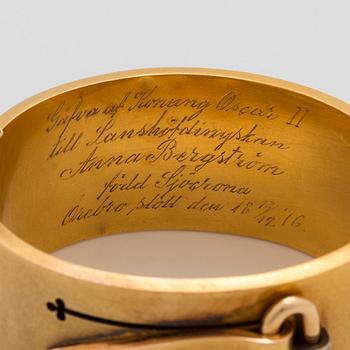 Gåfva af Konung Oscar II
till Landshöfdinyskan
Anna Bergström
född Sjöcrona
Örebro slott den 18 17/12 76.